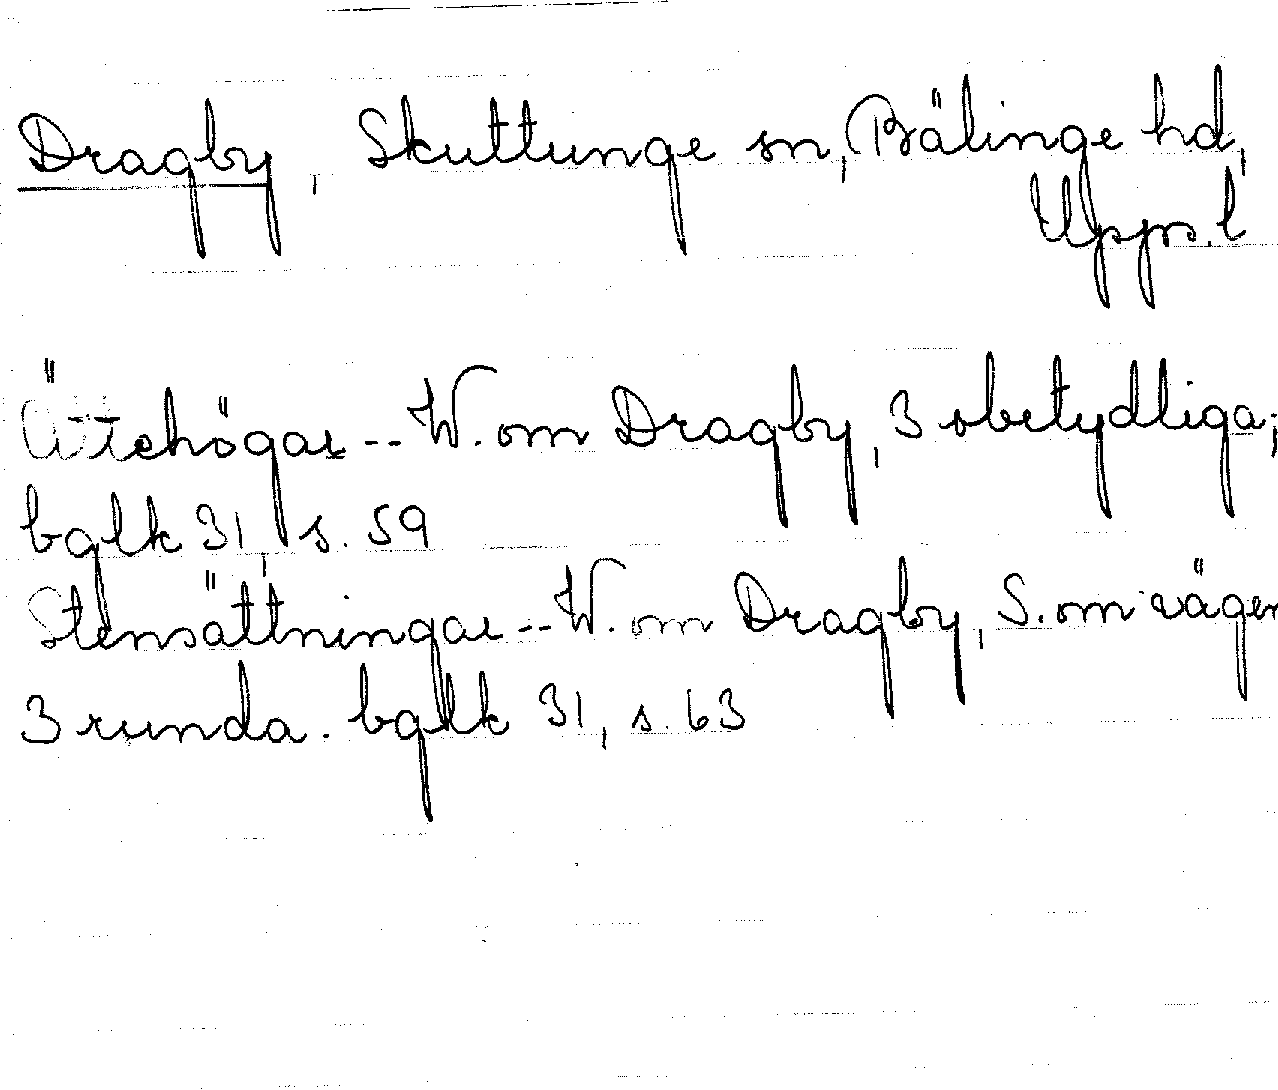 Dragby, Skuttunge sn, Bälinge hd,
Upps. l
Ättehögar -- W. om Dragby, 3 obetydliga;
bglk 31, s. 59
Stensättningar -- W. om Dragby, S. om vägen
3 runda. bglk 31, s. 63